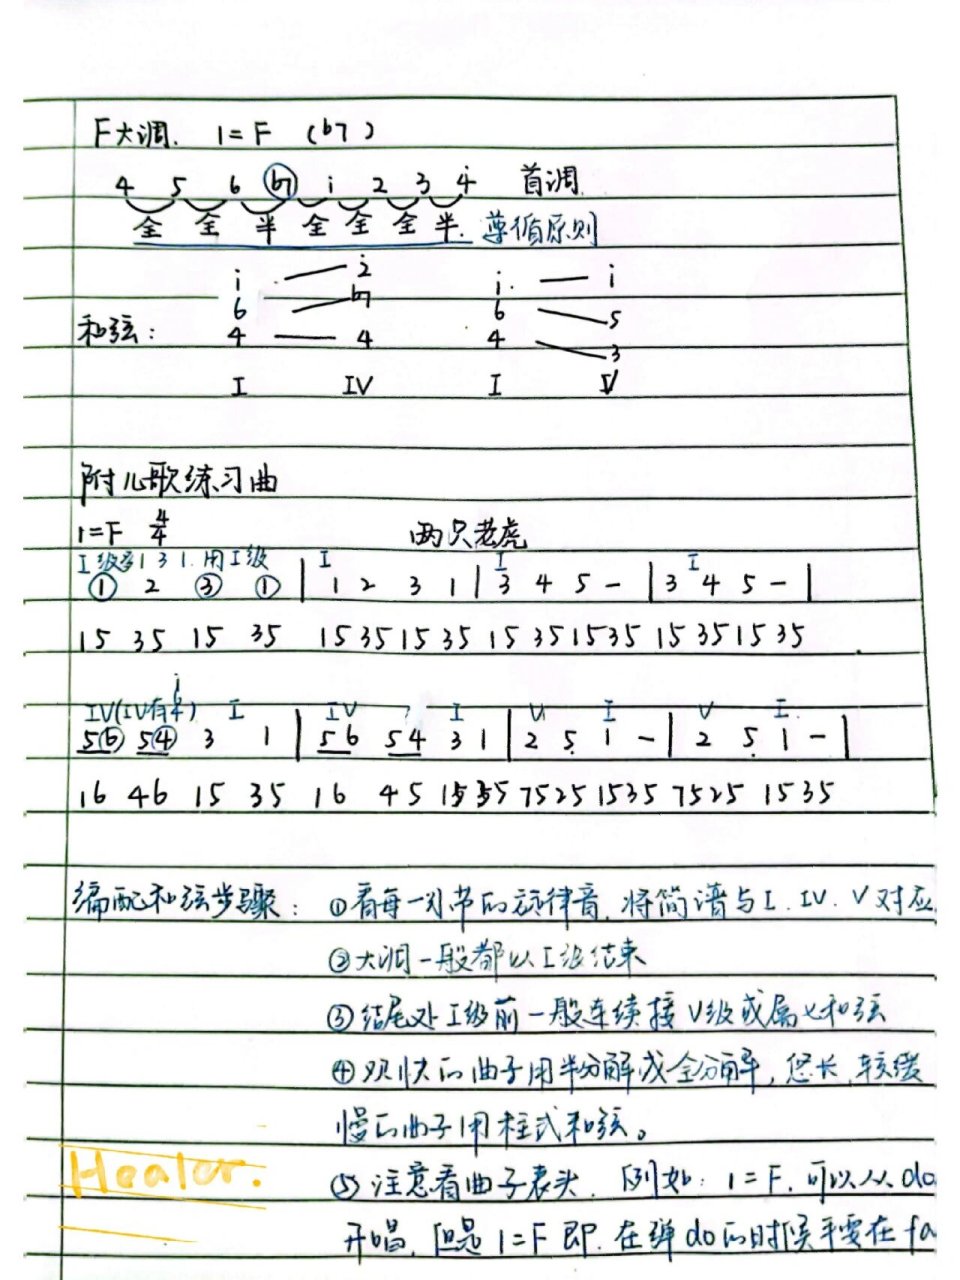 F大调. 1=F (b7)
4 5 6 b7 i 2 3 4 首调
全 全 半 全 全 全 半. 遵循原则
i 2 i. i
6 b7 6 5
和弦: 4 4 4 3
I IV I V
附儿歌练习曲
1=F 4/4 两只老虎
I级音131.用I级 I I I
① 2 ③ ① | 1 2 3 1 | 3 4 5 - | 3 4 5 - |
15 35 15 35 15 35 15 35 15 35 15 35 15 35 15 35
i
6
IV(IV有4) I IV I V I V I.
5⑥ 5④ 3 1 | 56 54 3 1 | 2 5 1 - | 2 5 1 - |
16 46 15 35 16 45 15 35 7525 1535 7525 1535
编配和弦步骤: ①看每一小节的旋律音,将简谱与I.IV.V对应
②大调一般都以I级结束
③结尾处I级前一般连续接V级或属七和弦
④欢快的曲子用半分解或全分解,悠长,较缓
慢的曲子用柱式和弦。
Healer. ⑤注意看曲子表头.例如:1=F.可以从do
开唱,但是1=F即.在弹do的时候手要在fa